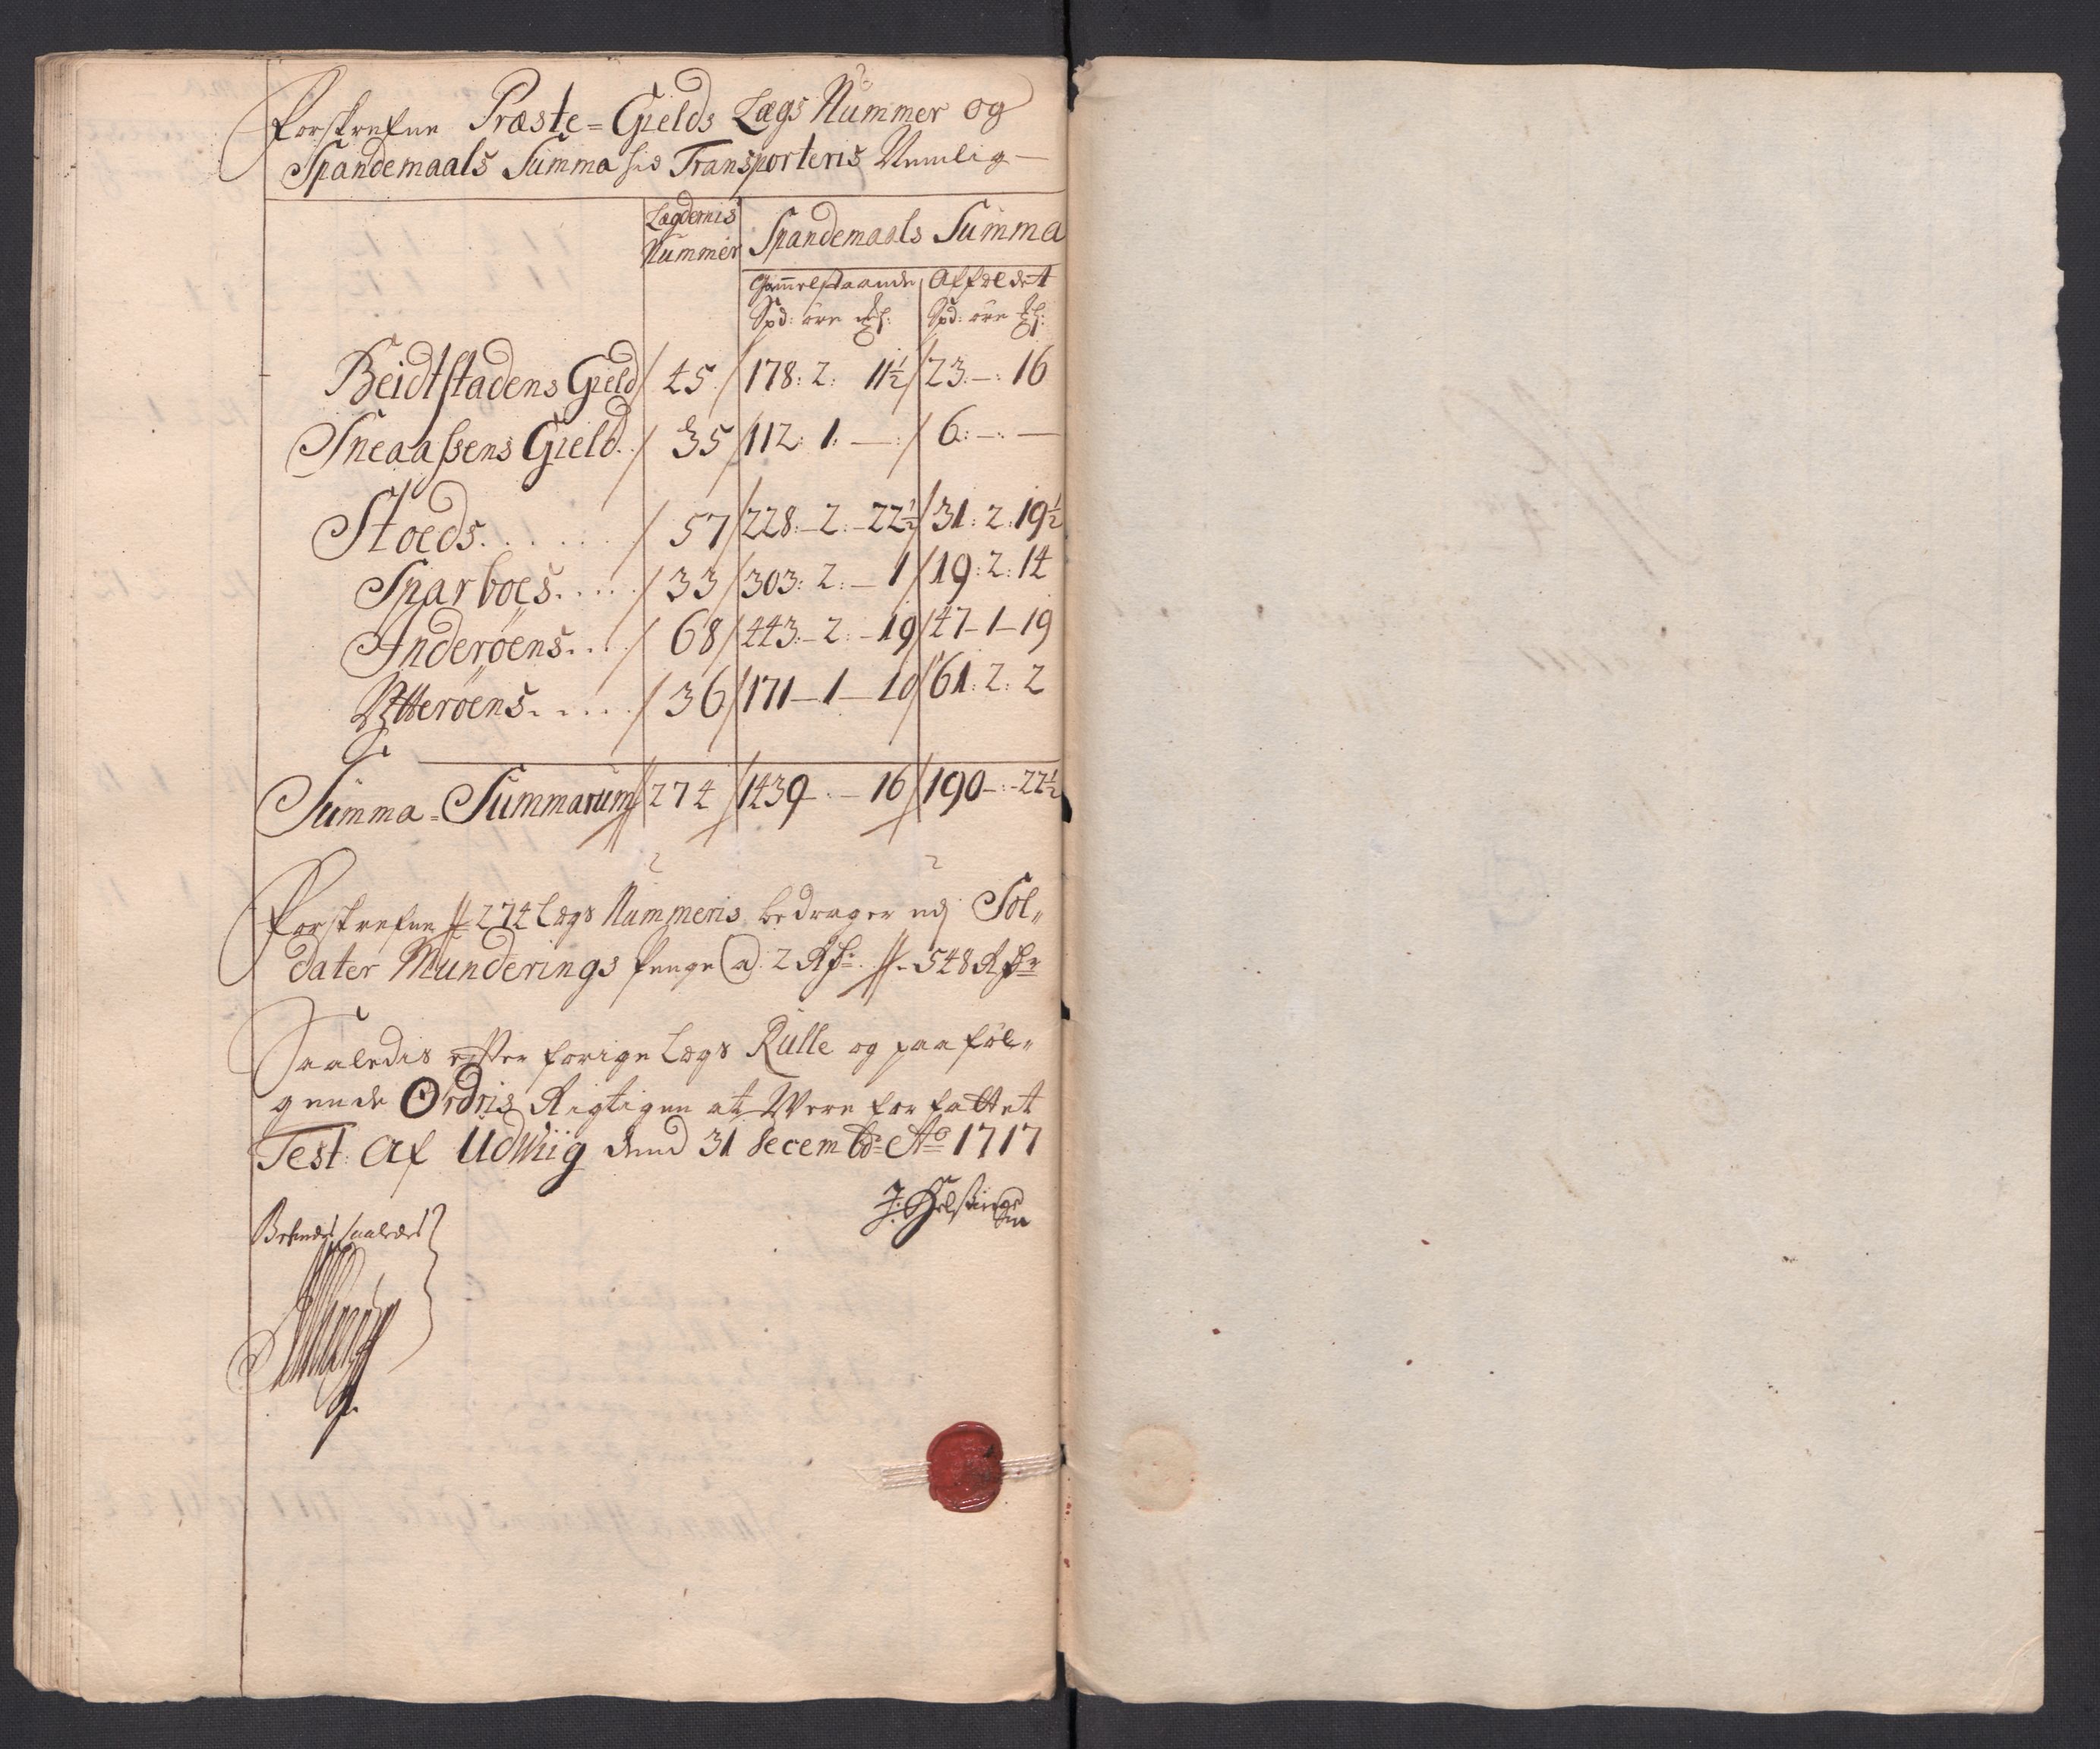 Forskrefne Præste=Gields Lægs Nummer og
Spandemaals Summa hid Transporteris Nemlig—
Lægdernis Nummer Spandemaals Summa
Gammelstaaende Affældet
Spd: öre Spd: öre
Beidtstadens Gield 45 178: 2: 11½ 23.—: 16
Sneaassens Gield.. 35 112: 1: —: 6:—:—
Stoeds...... 57 228:—2:—22½ 31: 2: 19½
Sparboes..... 33 303: 2:—1 19: 2: 14
Inderøens... 68 443:—2:—19 47—1—19
Ytterøens..... 36 171—1—10 61: 2: 2
Summa=Summarum 274 1439—.—16 190—:—22½
Forskrefne 274 Lægs Nummeris bedrager udj Sol„
dater Munderings Penge (a). 2 Rdr. 548 Rdr
Saaledis efter forige Lægs Rulle og paa føl„
gende Ordris Rigtigen at Were forfattet
Test: Af Udwiig dend 31 Decembr Ao 1717
Bekendes saaledes